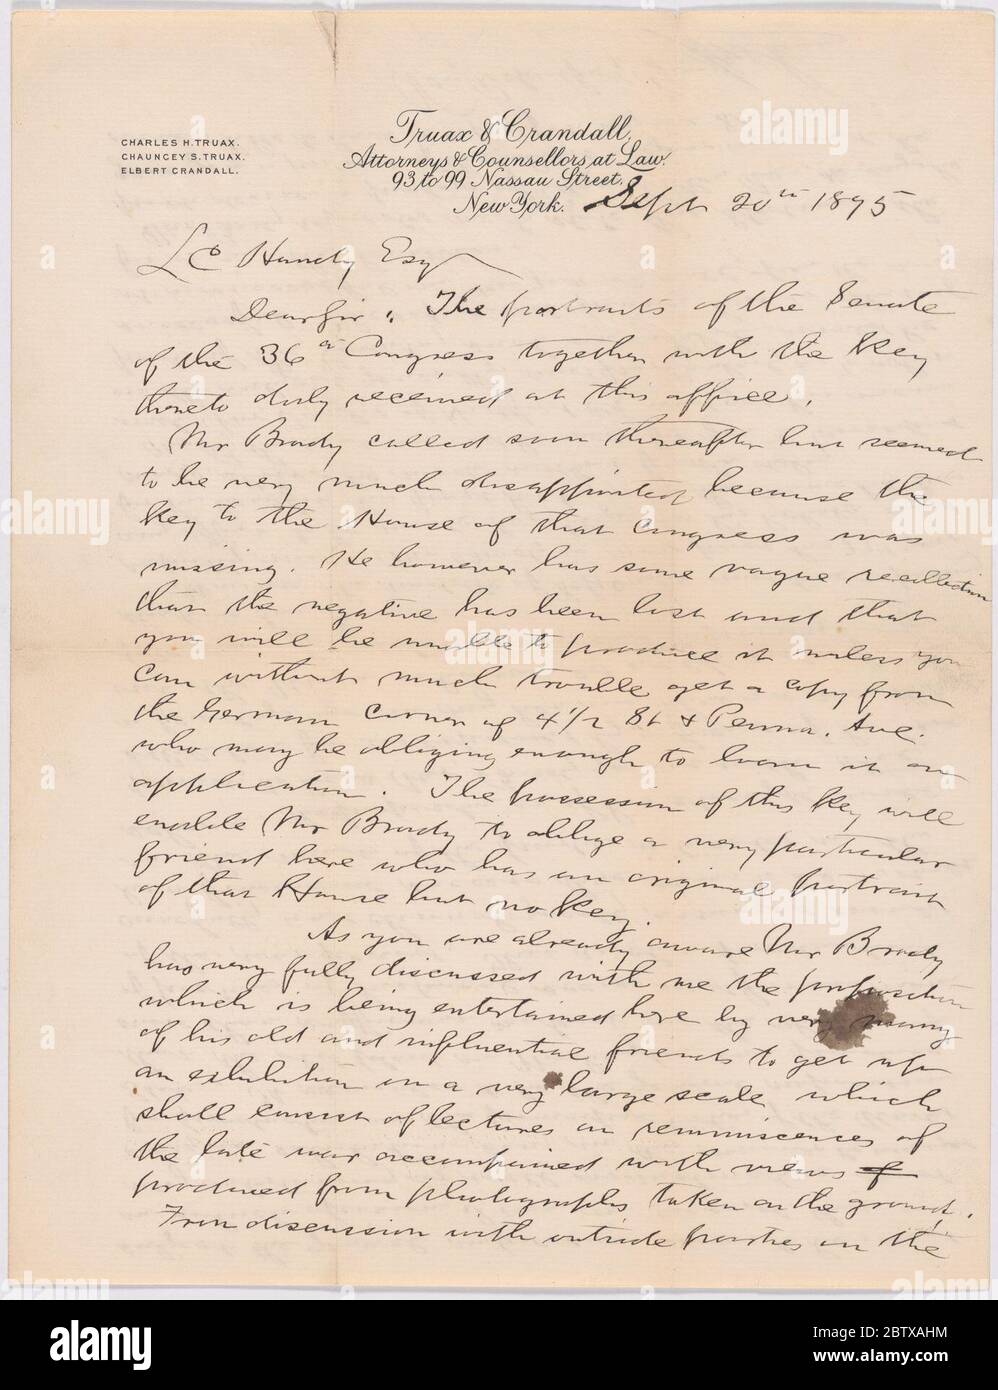 CHARLES H. TRUAX.
CHAUNCEY S. TRUAX.
ELBERT CRANDALL.
Truax & Crandall,
Attorneys & Counsellors at Law.
93 to 99 Nassau Street.
New York. Sept 20th 1895
L C Handy Esq
Dear Sir: The portraits of the Senate
of the 36th Congress together with the key
thereto duly received at this office.
Mr Brady called soon thereafter but seemed
to be very much disappointed because the
key to the House of that Congress was
missing. He however has some vague recollection
that the negative has been lost and that
you will be unable to produce it unless you
can without much trouble get a copy from
the German corner of 4 1/2 St & Penna. Ave.
who may be obliging enough to loan it on
application. The possession of this key will
enable Mr Brady to oblige a very particular
friend here who has an original portrait
of that House but no key.
As you are already aware Mr Brady
has very fully discussed with me the proposition
which is being entertained here by very many
of his old and influential friends to get up
an exhibition on a very large scale which
shall consist of lectures on reminiscences of
the late war accompanied with views
produced from photographs taken on the ground.
From discussion with outside parties on the
alamy
www.alamy.com
Image ID: 2BTXAHM